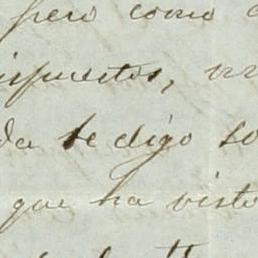 pero como
ispuestos,
da te digo so
que ha visto